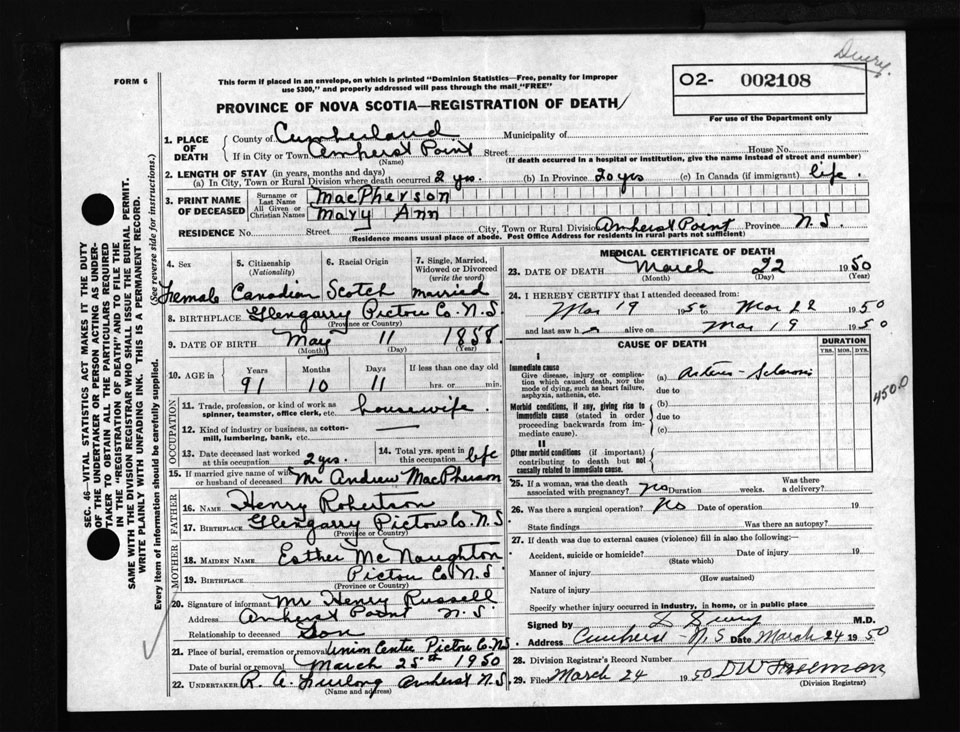 Dewry.
FORM 6
This form if placed in an envelope, on which is printed "Dominion Statistics—Free, penalty for improper
use $300," and properly addressed will pass through the mail "FREE"
O2- 002108
For use of the Department only
PROVINCE OF NOVA SCOTIA—REGISTRATION OF DEATH
SEC. 46—VITAL STATISTICS ACT MAKES IT THE DUTY
OF THE UNDERTAKER OR PERSON ACTING AS UNDER-
TAKER TO OBTAIN ALL THE PARTICULARS REQUIRED
IN THE "REGISTRATION OF DEATH" AND TO FILE THE
SAME WITH THE DIVISION REGISTRAR WHO SHALL ISSUE THE BURIAL PERMIT.
WRITE PLAINLY WITH UNFADING INK. THIS IS A PERMANENT RECORD.
Every item of information should be carefully supplied. (See reverse side for instructions.)
1. PLACE OF DEATH County of Cumberland Municipality of
If in City or Town Amherst Point Street House No.
(Name) (If death occurred in a hospital or institution, give the name instead of street and number)
2. LENGTH OF STAY (in years, months and days)
(a) In City, Town or Rural Division where death occurred 2 yrs. (b) In Province 20 yrs (c) In Canada (if immigrant) life.
3. PRINT NAME OF DECEASED Surname or Last Name MacPherson
All Given or Christian Names Mary Ann
RESIDENCE No. Street City, Town or Rural Division Amherst Point Province N.S.
(Residence means usual place of abode. Post Office Address for residents in rural parts not sufficient)
4. Sex 5. Citizenship (Nationality) 6. Racial Origin 7. Single, Married, Widowed or Divorced (write the word)
Female Canadian Scotch married
8. BIRTHPLACE Glengarry Pictou Co. N.S.
(Province or Country)
9. DATE OF BIRTH May 11 1858
(Month) (Day) (Year)
10. AGE in Years Months Days If less than one day old
91 10 11 hrs. or min.
OCCUPATION
11. Trade, profession, or kind of work as spinner, teamster, office clerk, etc. housewife.
12. Kind of industry or business, as cotton-mill, lumbering, bank, etc.
13. Date deceased last worked at this occupation 2 yrs. 14. Total yrs. spent in this occupation life
15. If married give name of wife or husband of deceased Mr Andrew MacPherson
FATHER
16. NAME Henry Robertson
17. BIRTHPLACE Glengarry Pictou Co. N.S.
(Province or Country)
MOTHER
18. MAIDEN NAME Esther McNaughton
19. BIRTHPLACE Pictou Co N.S.
(Province or Country)
20. Signature of informant Mr Henry Russell
Address Amherst Point N.S.
Relationship to deceased Son
21. Place of burial, cremation or removal Union Centre Pictou Co. N.S.
Date of burial or removal March 25th 1950
22. UNDERTAKER R. A. Furlong Amherst N.S.
(Name and address)
MEDICAL CERTIFICATE OF DEATH
23. DATE OF DEATH March 22 1950
(Month) (Day) (Year)
24. I HEREBY CERTIFY that I attended deceased from:
Mar 19 1950 to Mar 22 1950
and last saw h alive on Mar 19 1950
CAUSE OF DEATH DURATION
YRS. MOS. DYS.
I
Immediate cause
Give disease, injury or complication which caused death, NOT the mode of dying, such as heart failure, asphyxia, asthenia, etc.
(a) Arterio-Sclerosis
due to
4500
Morbid conditions, if any, giving rise to immediate cause (stated in order proceeding backwards from immediate cause).
(b)
due to
(c)
II
Other morbid conditions (if important) contributing to death but not causally related to immediate cause.
25. If a woman, was the death associated with pregnancy? no Duration weeks. Was there a delivery?
26. Was there a surgical operation? no Date of operation 19
State findings Was there an autopsy?
27. If death was due to external causes (violence) fill in also the following:—
Accident, suicide or homicide? Date of injury 19
(State which)
Manner of injury
(How sustained)
Nature of injury
Specify whether injury occurred in industry, in home, or in public place
Signed by M.D.
Address Amherst - N.S Date March 24 1950
28. Division Registrar's Record Number
29. Filed March 24 1950
(Division Registrar)